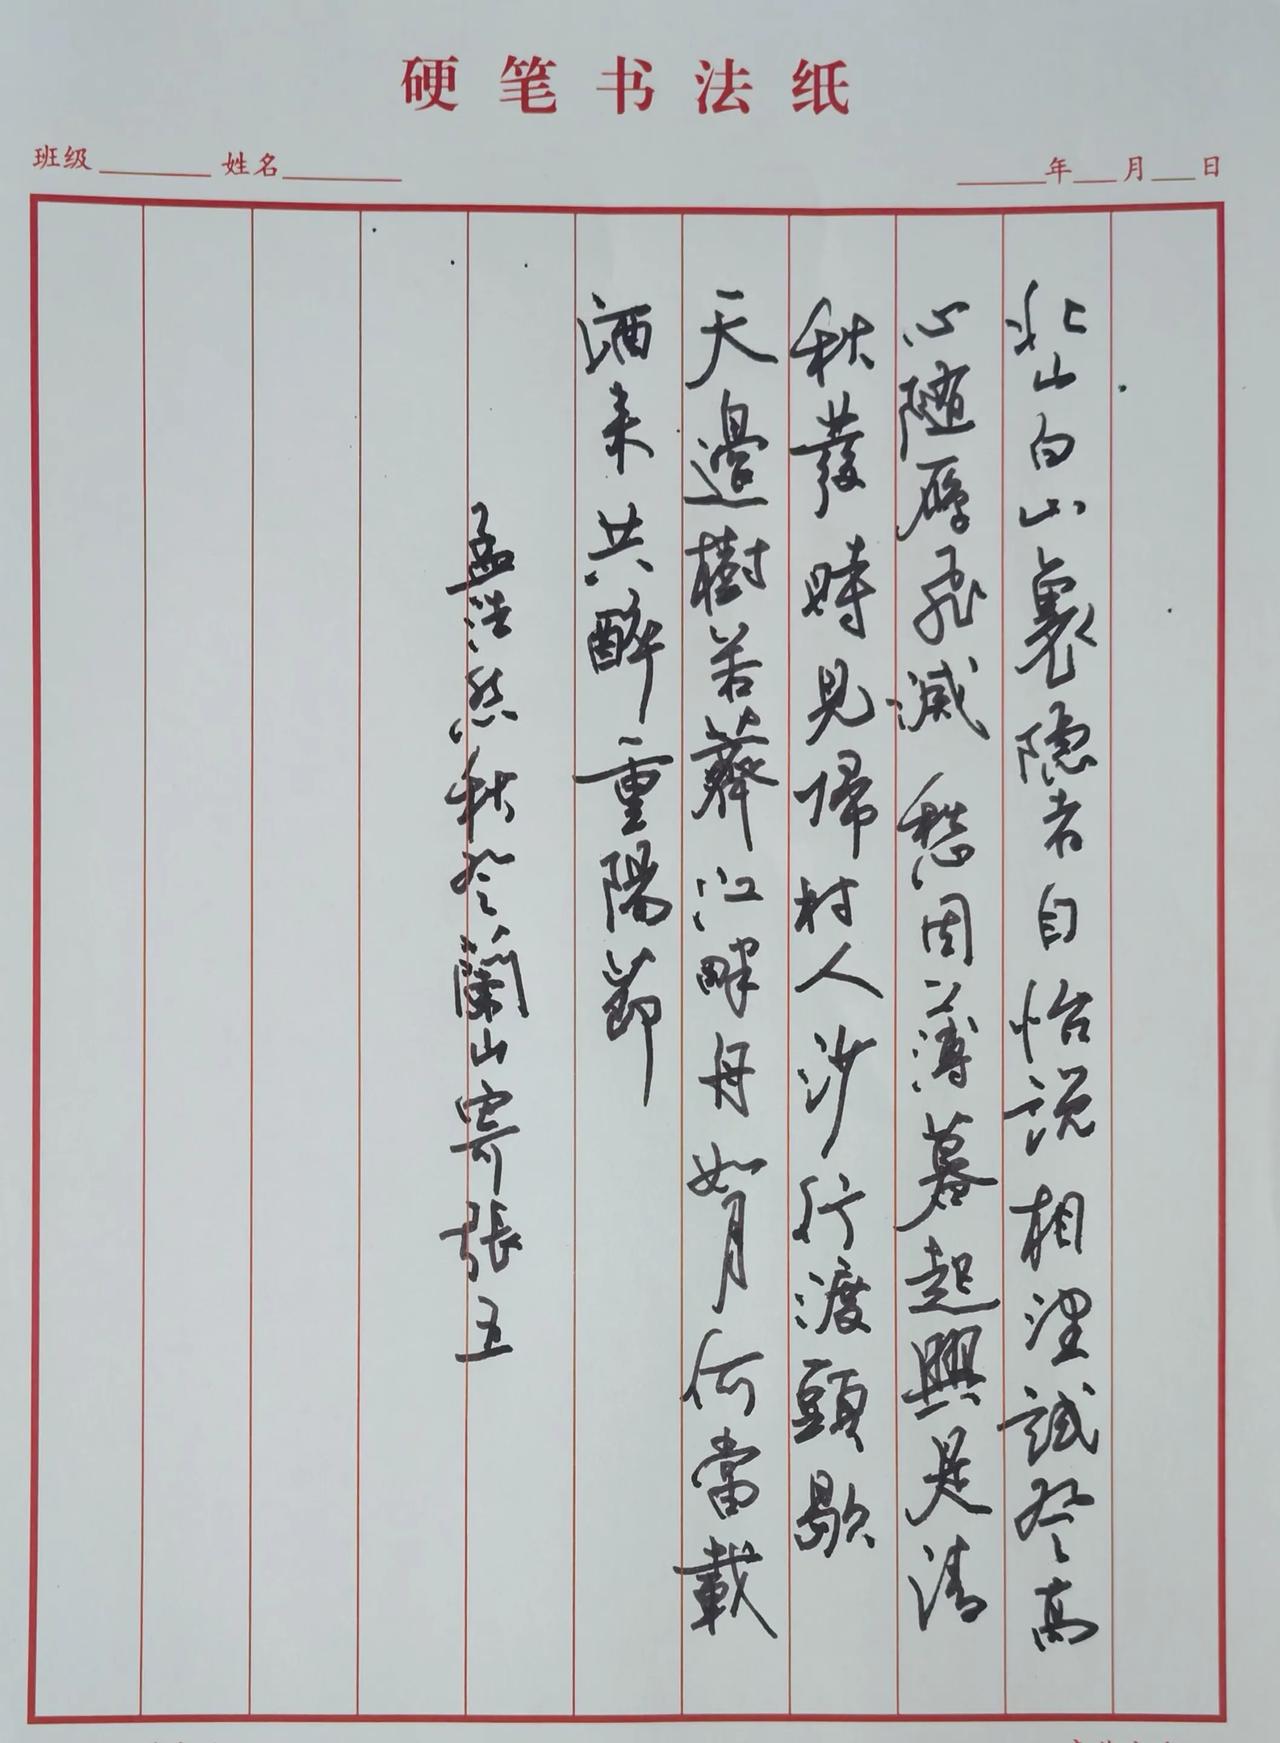 硬笔书法纸
班级 姓名 年 月 日
北山白山裏隐者自怡説相望試登高
心随雁飛滅愁因薄暮起興是清
秋發時見歸村人沙行渡頭歇
天邊樹若薺江畔舟如月何當載
酒来共醉重陽節
孟浩然秋登蘭山寄張五